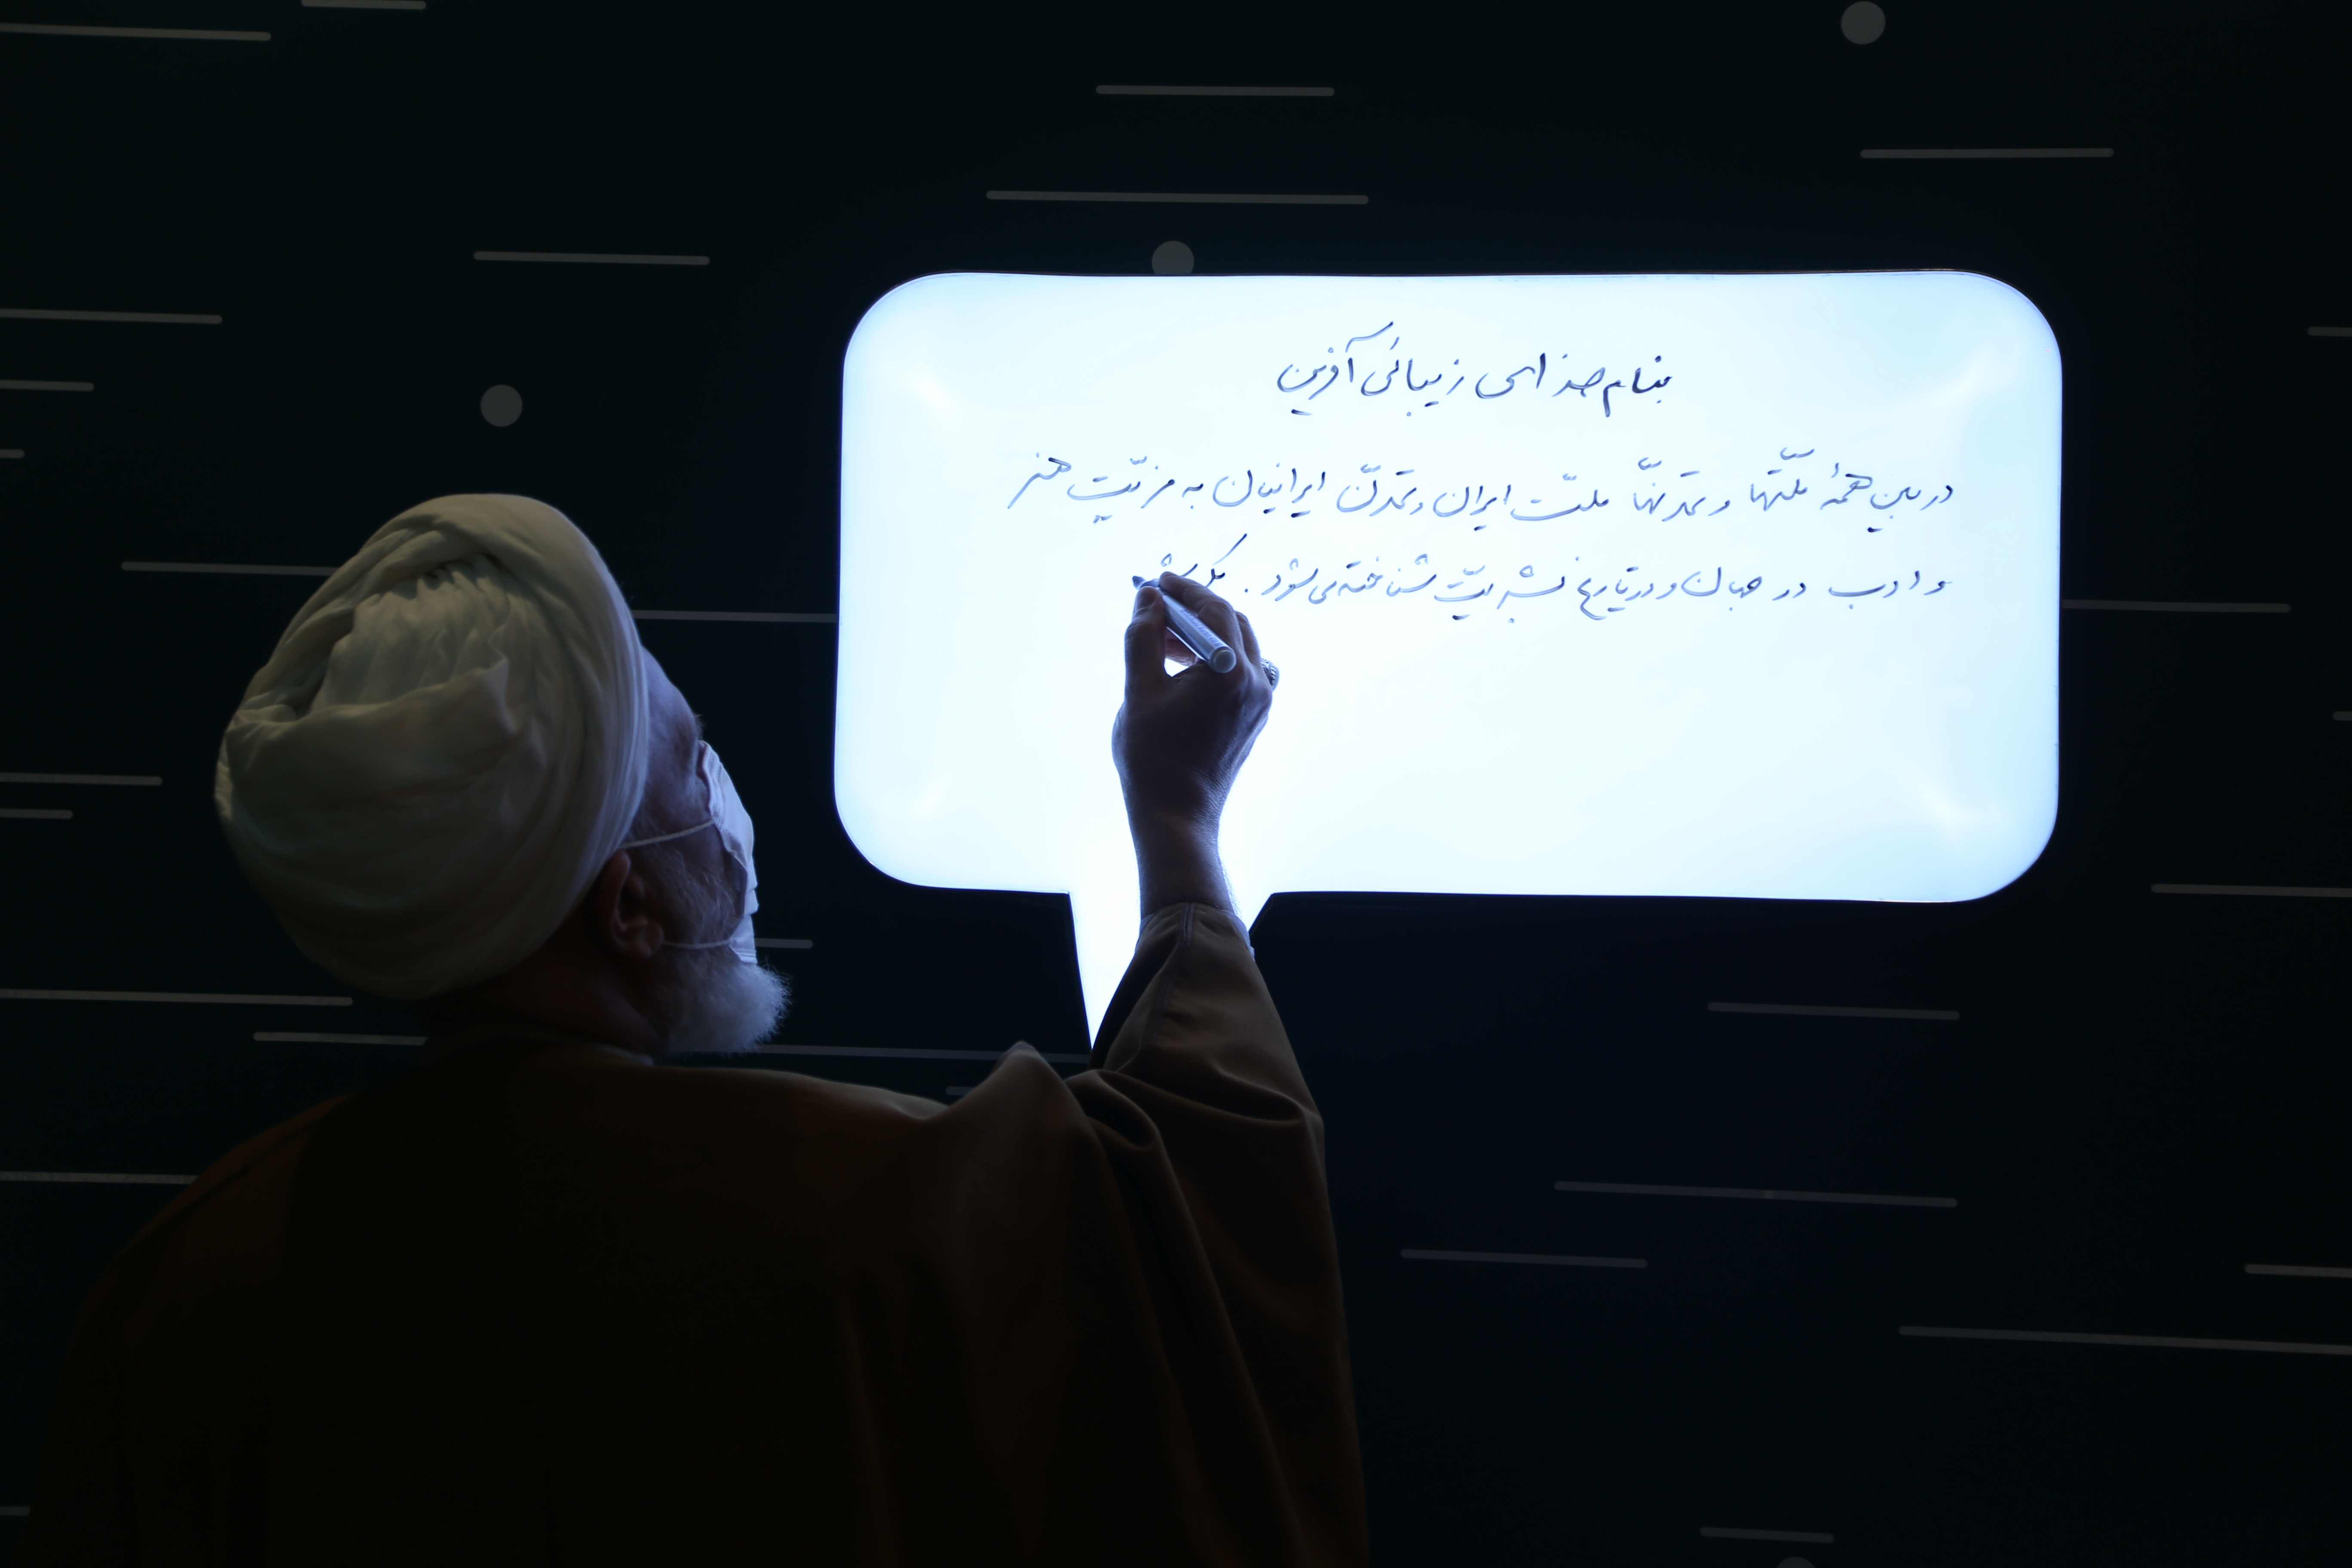 بنام خدای زیبائی آفرین
در بین همهٔ ملّتها و تمدنّها ملّت ایران و تمدّن ایرانیان به مزیّت هنر
و ادب در جهان و در تاریخ بشریّت شناخته می‌شود.